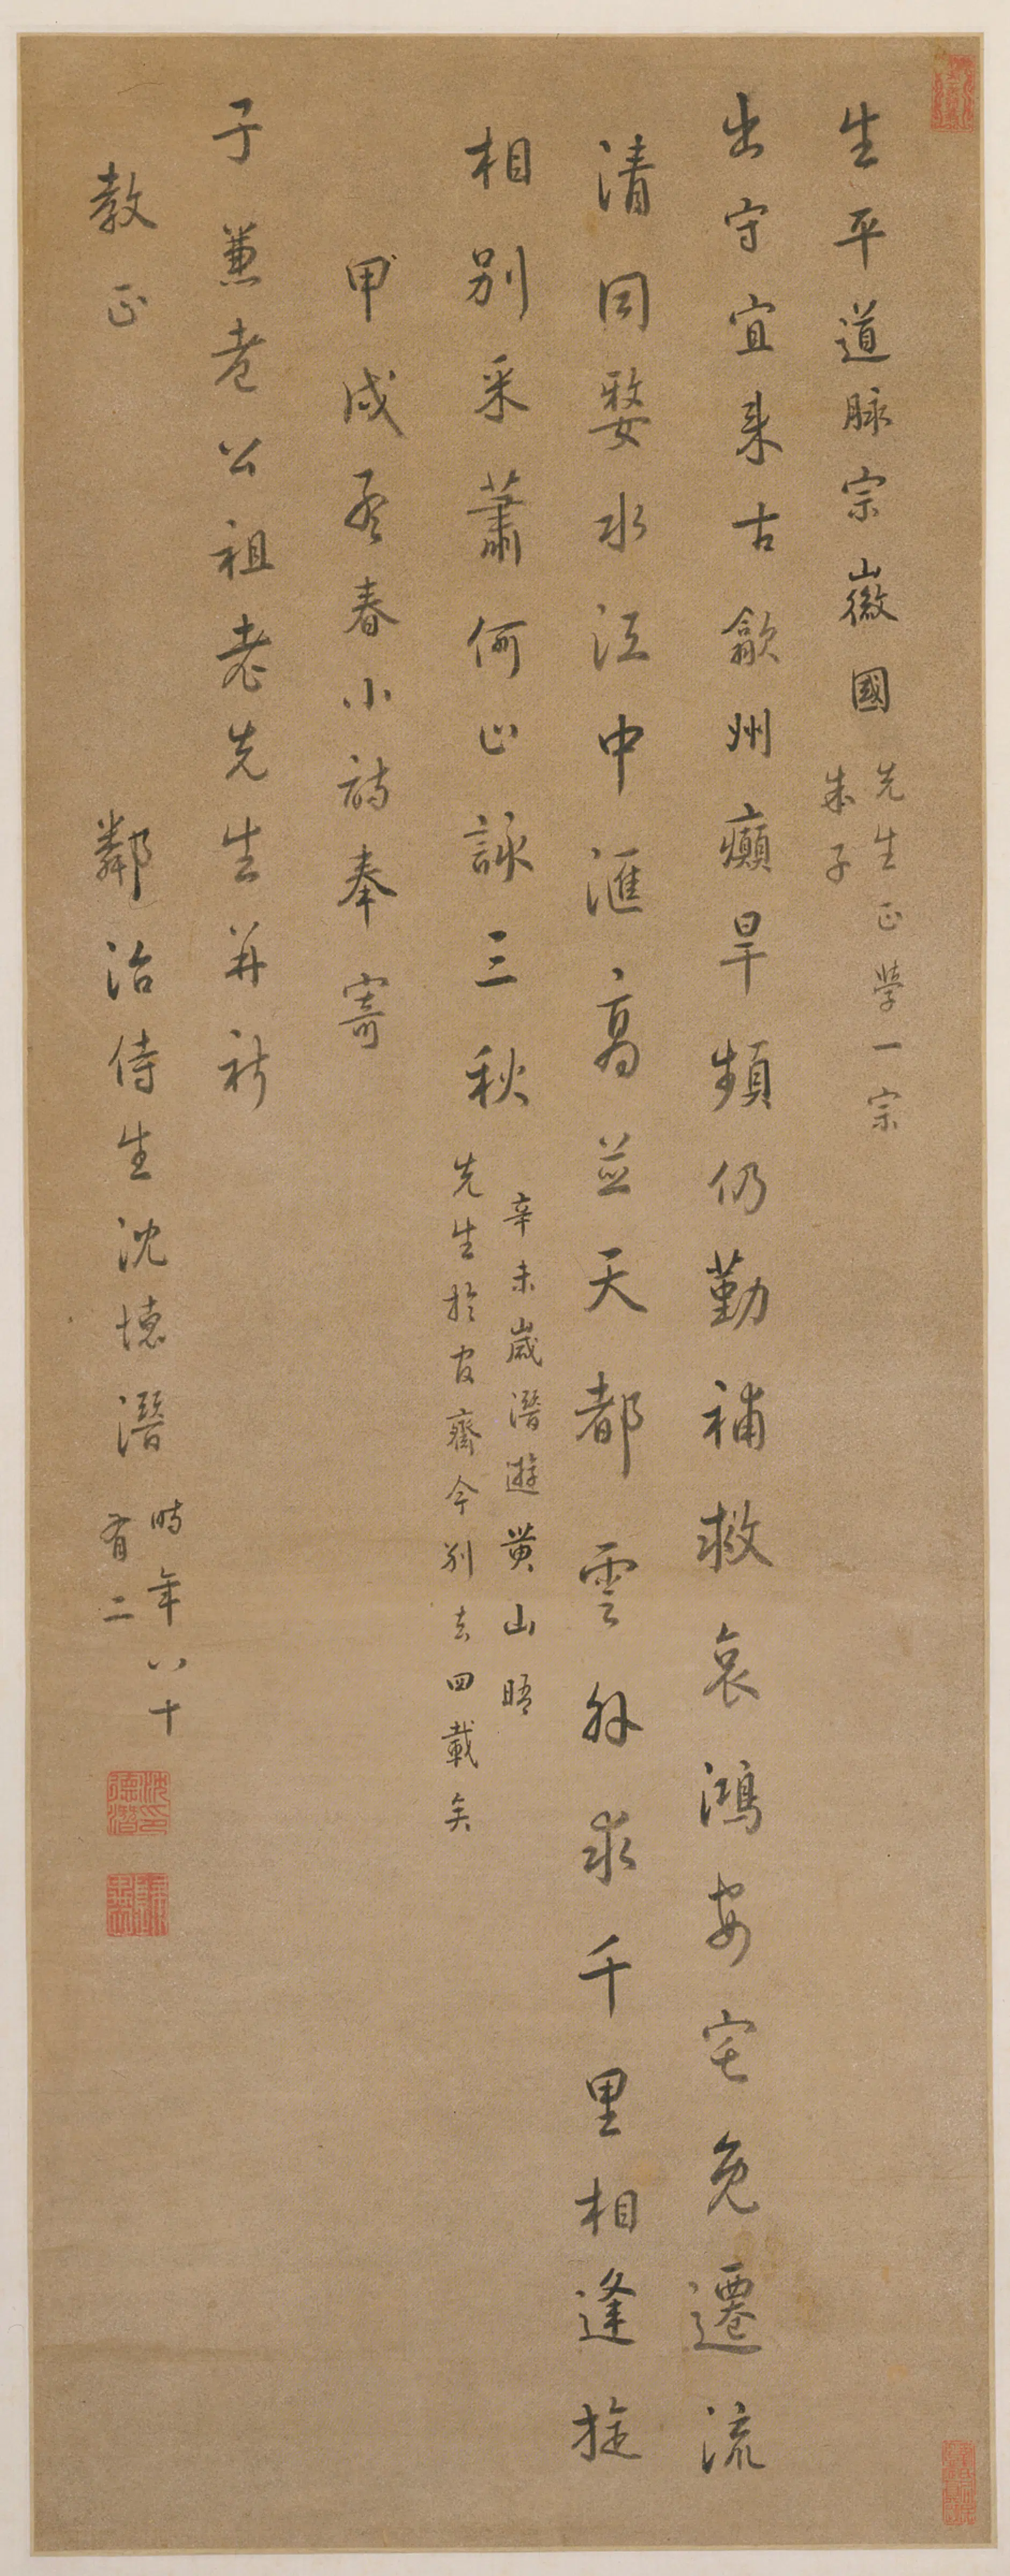 生平道脉宗徽國
先生正學一宗
朱子
出守宜來古歙州癲旱頻仍勤補救哀鴻安宅免遷流
清同婺水江中滙高並天都雲外求千里相逢旋
相別采蕭何止詠三秋
辛未歲潛遊黃山晤
先生於官齋今別去四載矣
甲戌春小詩奉寄
于兼老公祖老先生并祈
教正
鄰治侍生沈德潛
時年八十
有二
沈印德潛